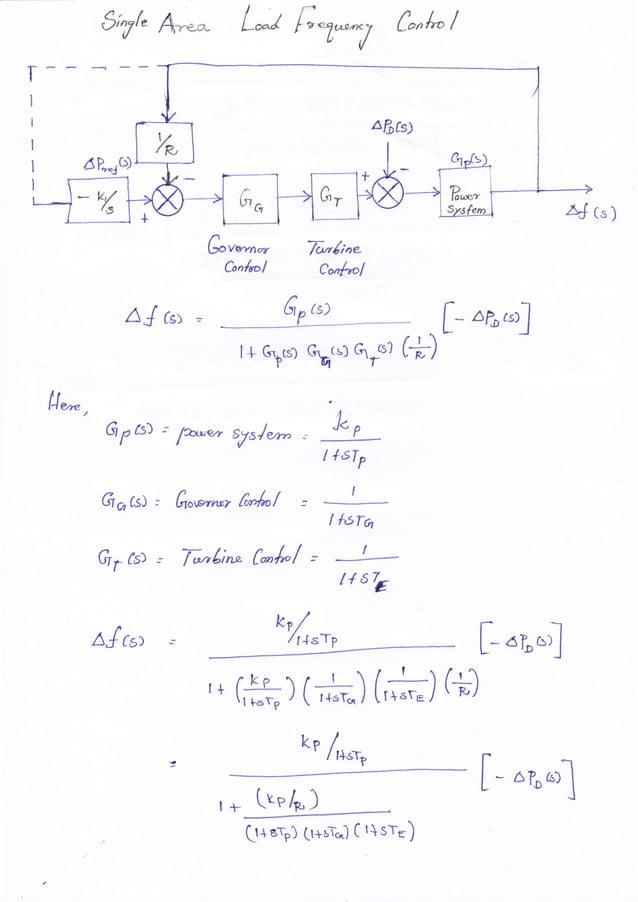 Single Area Load Frequency Control
ΔPD(s)
1/R
ΔPref(s)
Gp(s)
- +
+ -
- Ki/s
GG
GT
Power
System
Δf(s)
Governor Control
Turbine Control
Δf(s) = Gp(s) / (1 + Gp(s) GG(s) GT(s) (1/R)) [- ΔPD(s)]
Here,
Gp(s) = power system = kp / (1+STp)
GG(s) = Governor Control = 1 / (1+STG)
GT(s) = Turbine Control = 1 / (1+STE)
Δf(s) = (kp/1+sTp) / (1 + (kp/1+sTp) (1/1+sTG) (1/1+sTE) (1/R)) [- ΔPD(s)]
= (kp/1+sTp) / (1 + (kp/R) / ((1+sTp) (1+sTG) (1+sTE))) [- ΔPD(s)]